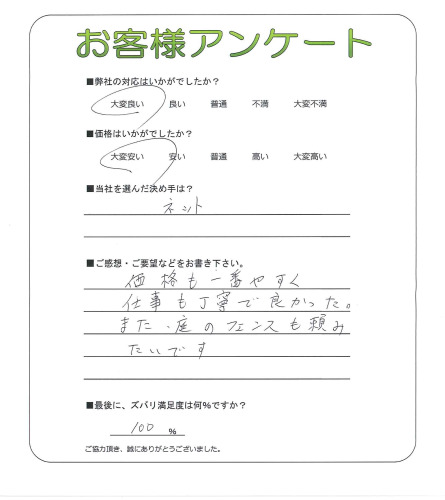 お客様アンケート
■弊社の対応はいかがでしたか？
大変良い　良い　普通　不満　大変不満
■価格はいかがでしたか？
大変安い　安い　普通　高い　大変高い
■当社を選んだ決め手は？
ネット
■ご感想・ご要望などをお書き下さい。
価格も一番やすく
仕事も丁寧で良かった。
また、庭のフェンスも頼み
たいです
■最後に、ズバリ満足度は何％ですか？
100 ％
ご協力頂き、誠にありがとうございました。